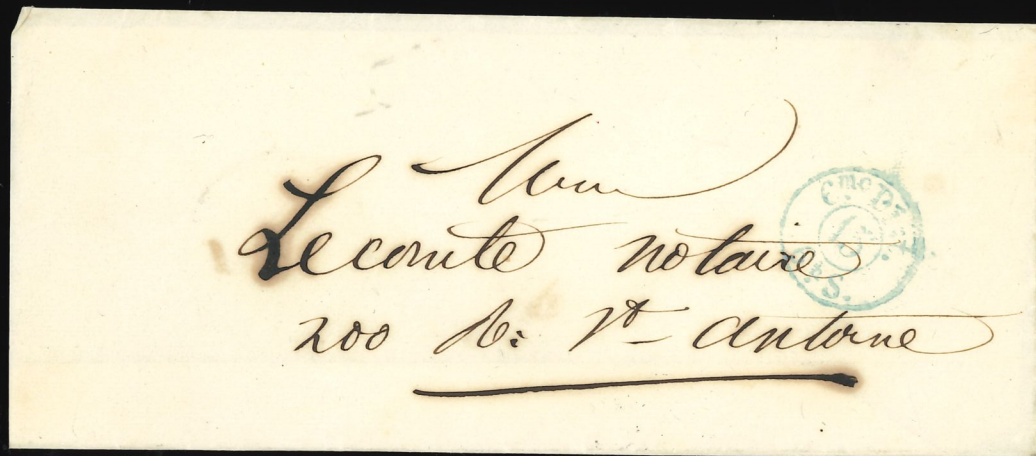 Lecomte notaire
200 R: St Antoine
6me Dist